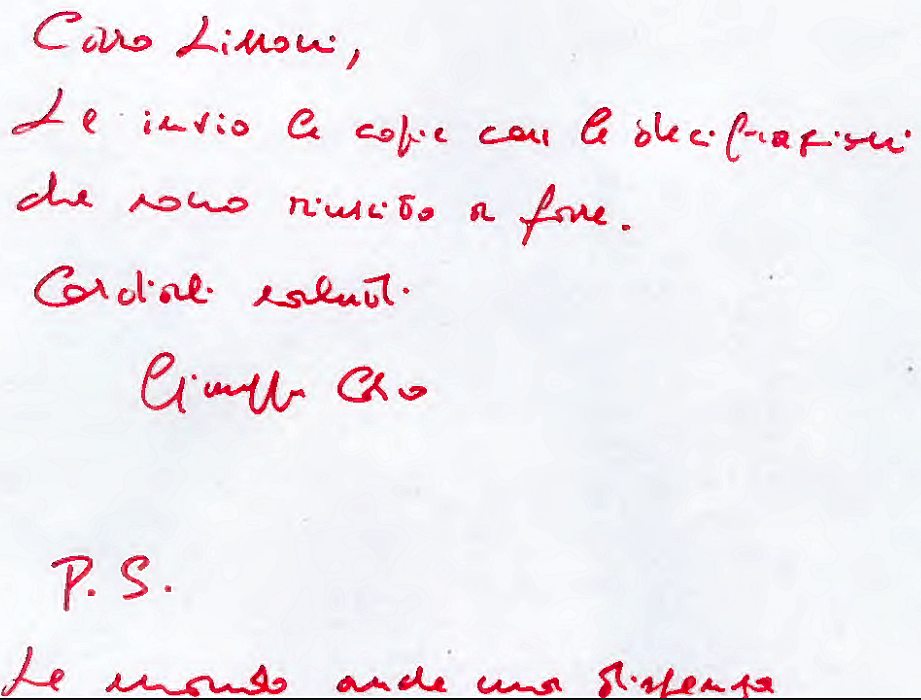 Caro Limoni,
Le invio le copie con le decifrazioni
che sono riuscito a fare.
Cordiali saluti.
Giuseppe
P.S.
Le mando anche una dispensa